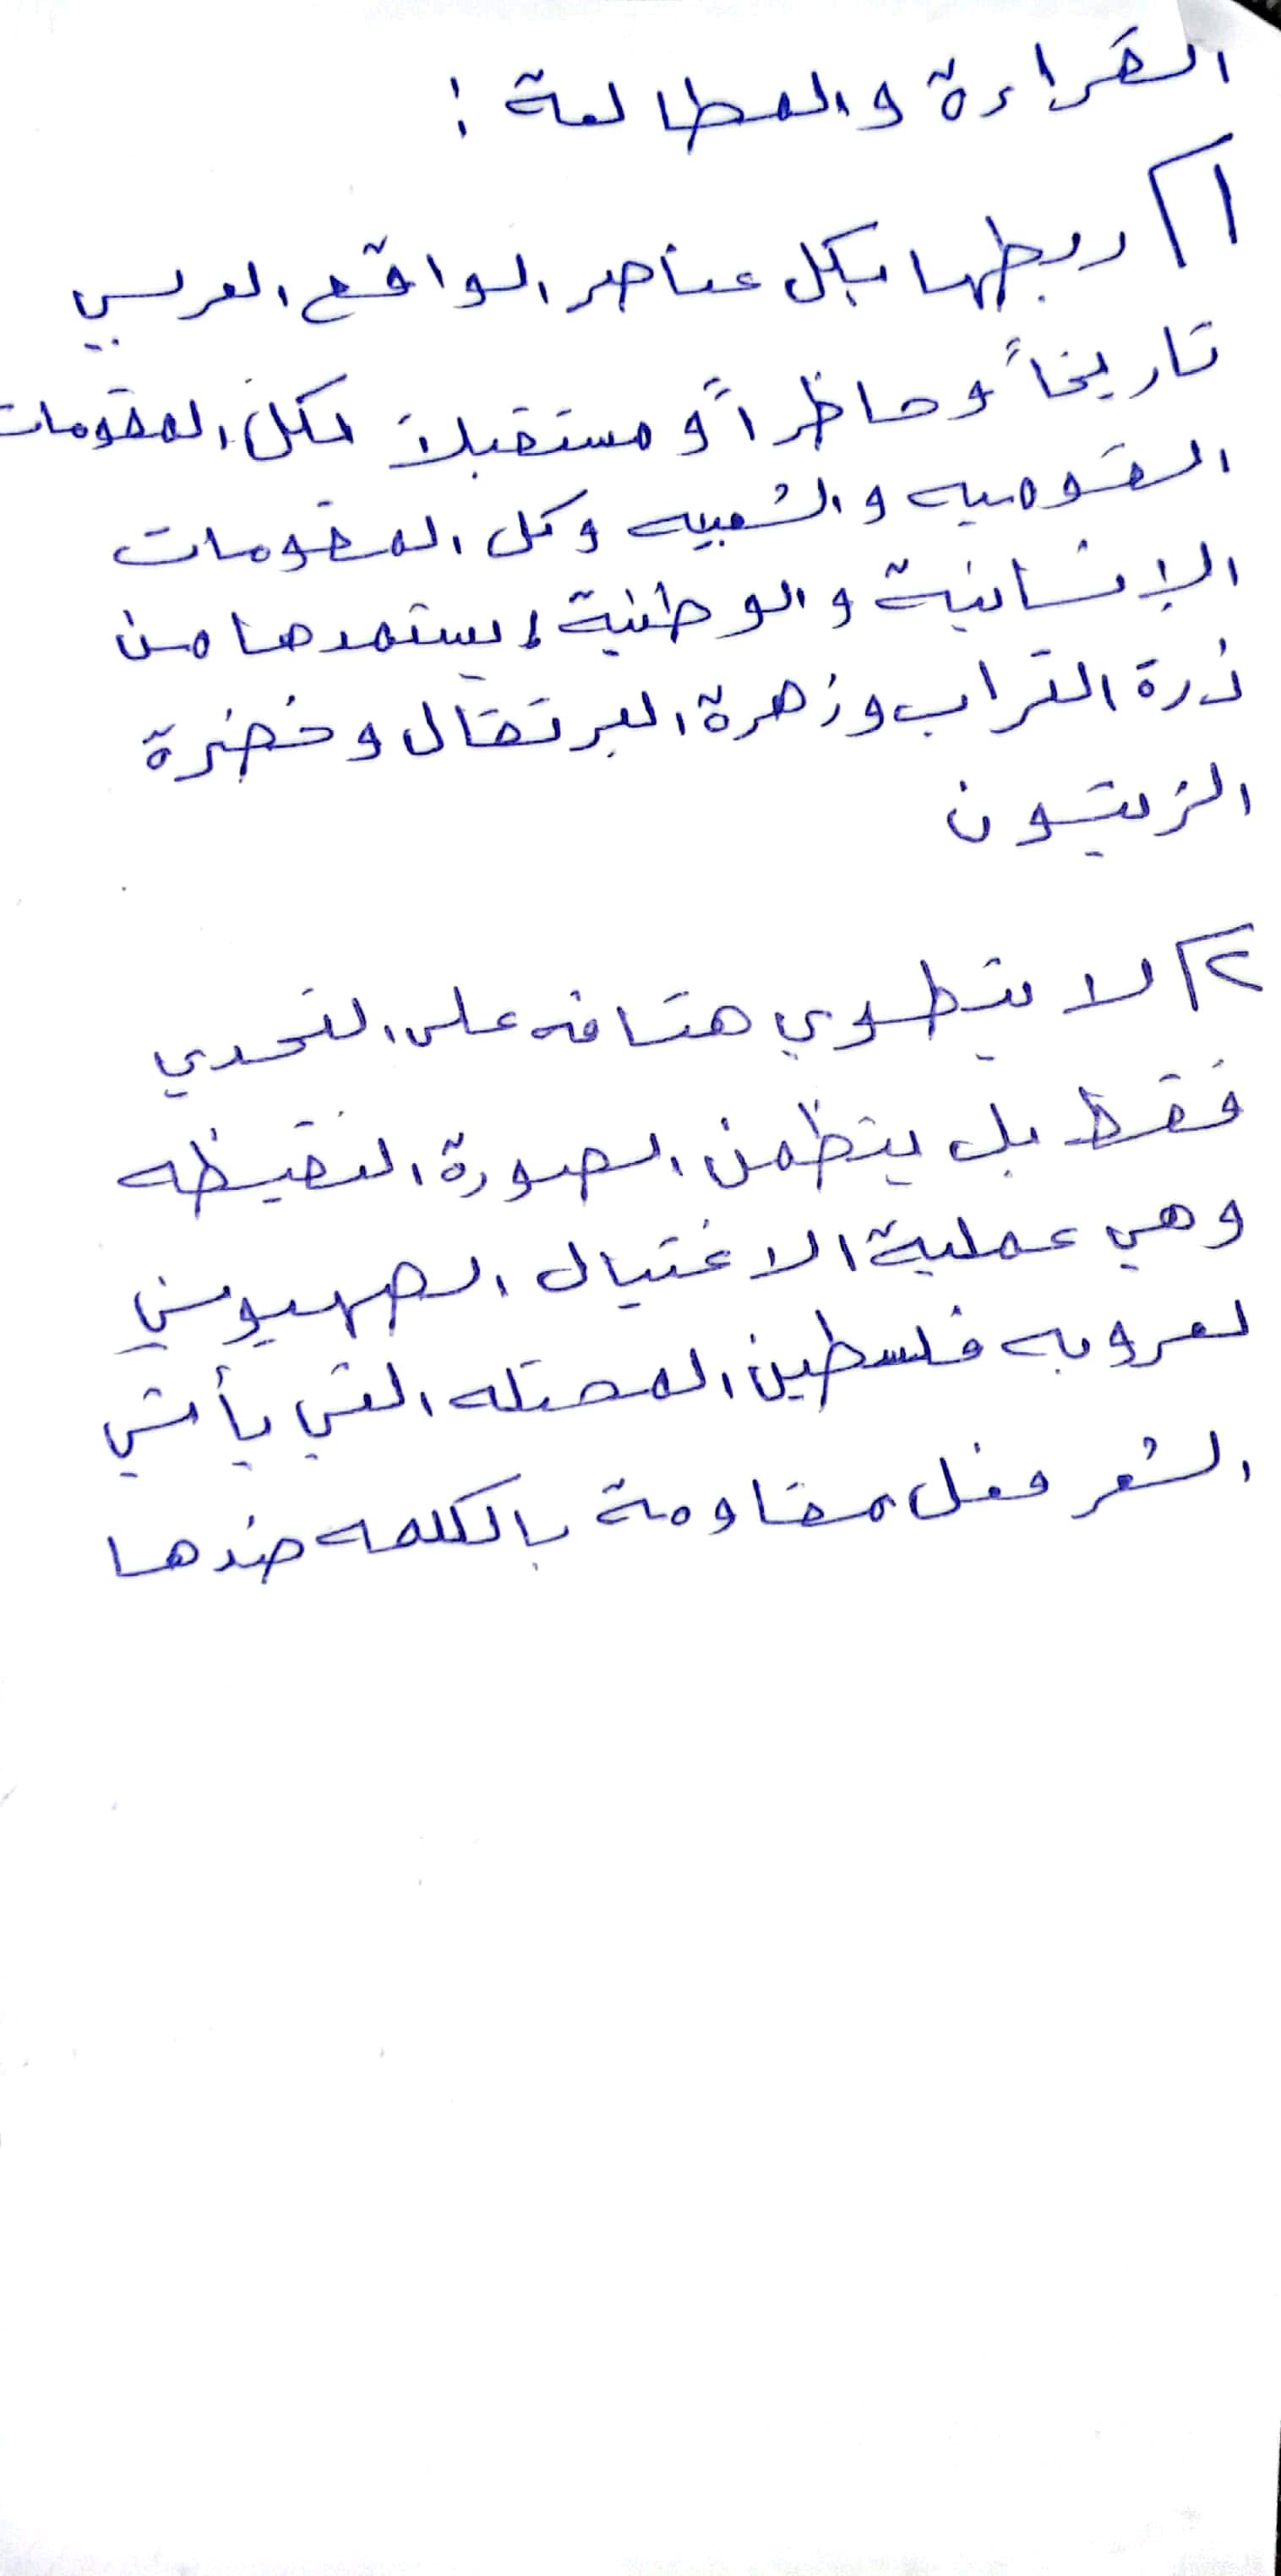 القراءة والمطالعة :
١/ ربطها بكل عناصر الواقع العربي
تاريخاً وحاظراً ومستقبلاً لكل المقومات
القوميه والشعبيه وكل المقومات
الإنسانية والوطنية يستمدها من
ذرة التراب وزهرة البرتقال وخضرة
الزيتون
٢/ لا ينطوي هتافه على التحدي
فقط بل يتظمن الصورة النقيظه
وهي عملية الاغتيال الصهيوني
لعروبه فلسطين المحتله التي يأتي
الشعر فعل مقاومة بالكلمه ضدها